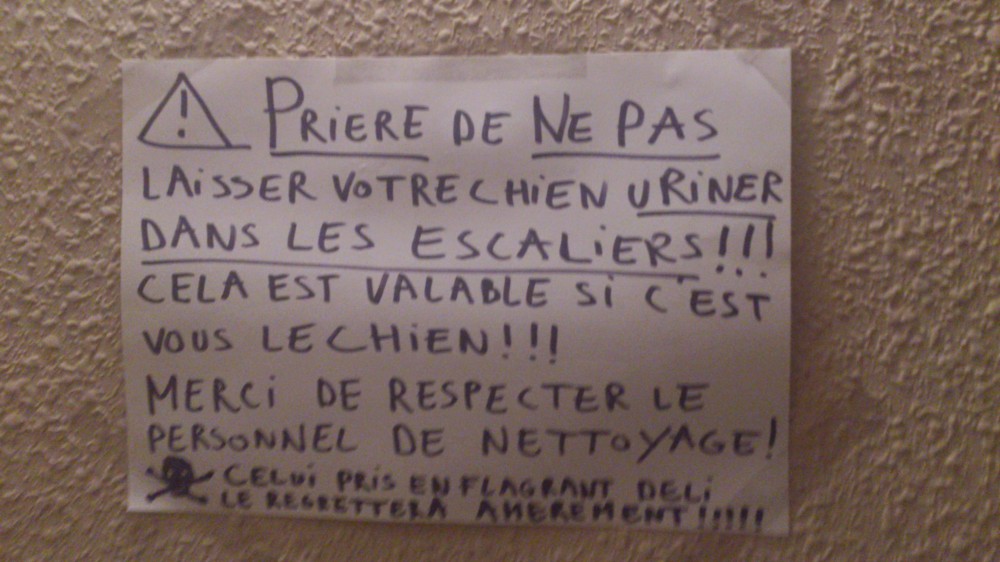 PRIERE DE NE PAS
LAISSER VOTRE CHIEN URINER
DANS LES ESCALIERS!!!
CELA EST VALABLE SI C'EST
VOUS LE CHIEN!!!
MERCI DE RESPECTER LE
PERSONNEL DE NETTOYAGE!
CELUI PRIS EN FLAGRANT DELI
LE REGRETTERA AMEREMENT!!!!!